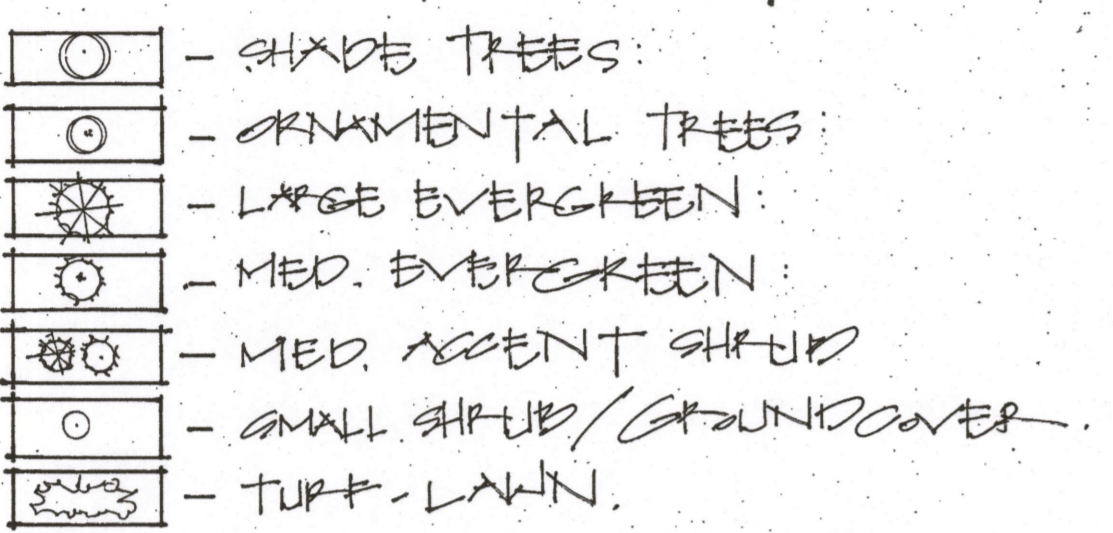 - SHADE TREES:
- ORNAMENTAL TREES:
- LARGE EVERGREEN:
- MED. EVERGREEN:
- MED. ACCENT SHRUB
- SMALL SHRUB/GROUNDCOVER.
- TURF-LAWN.